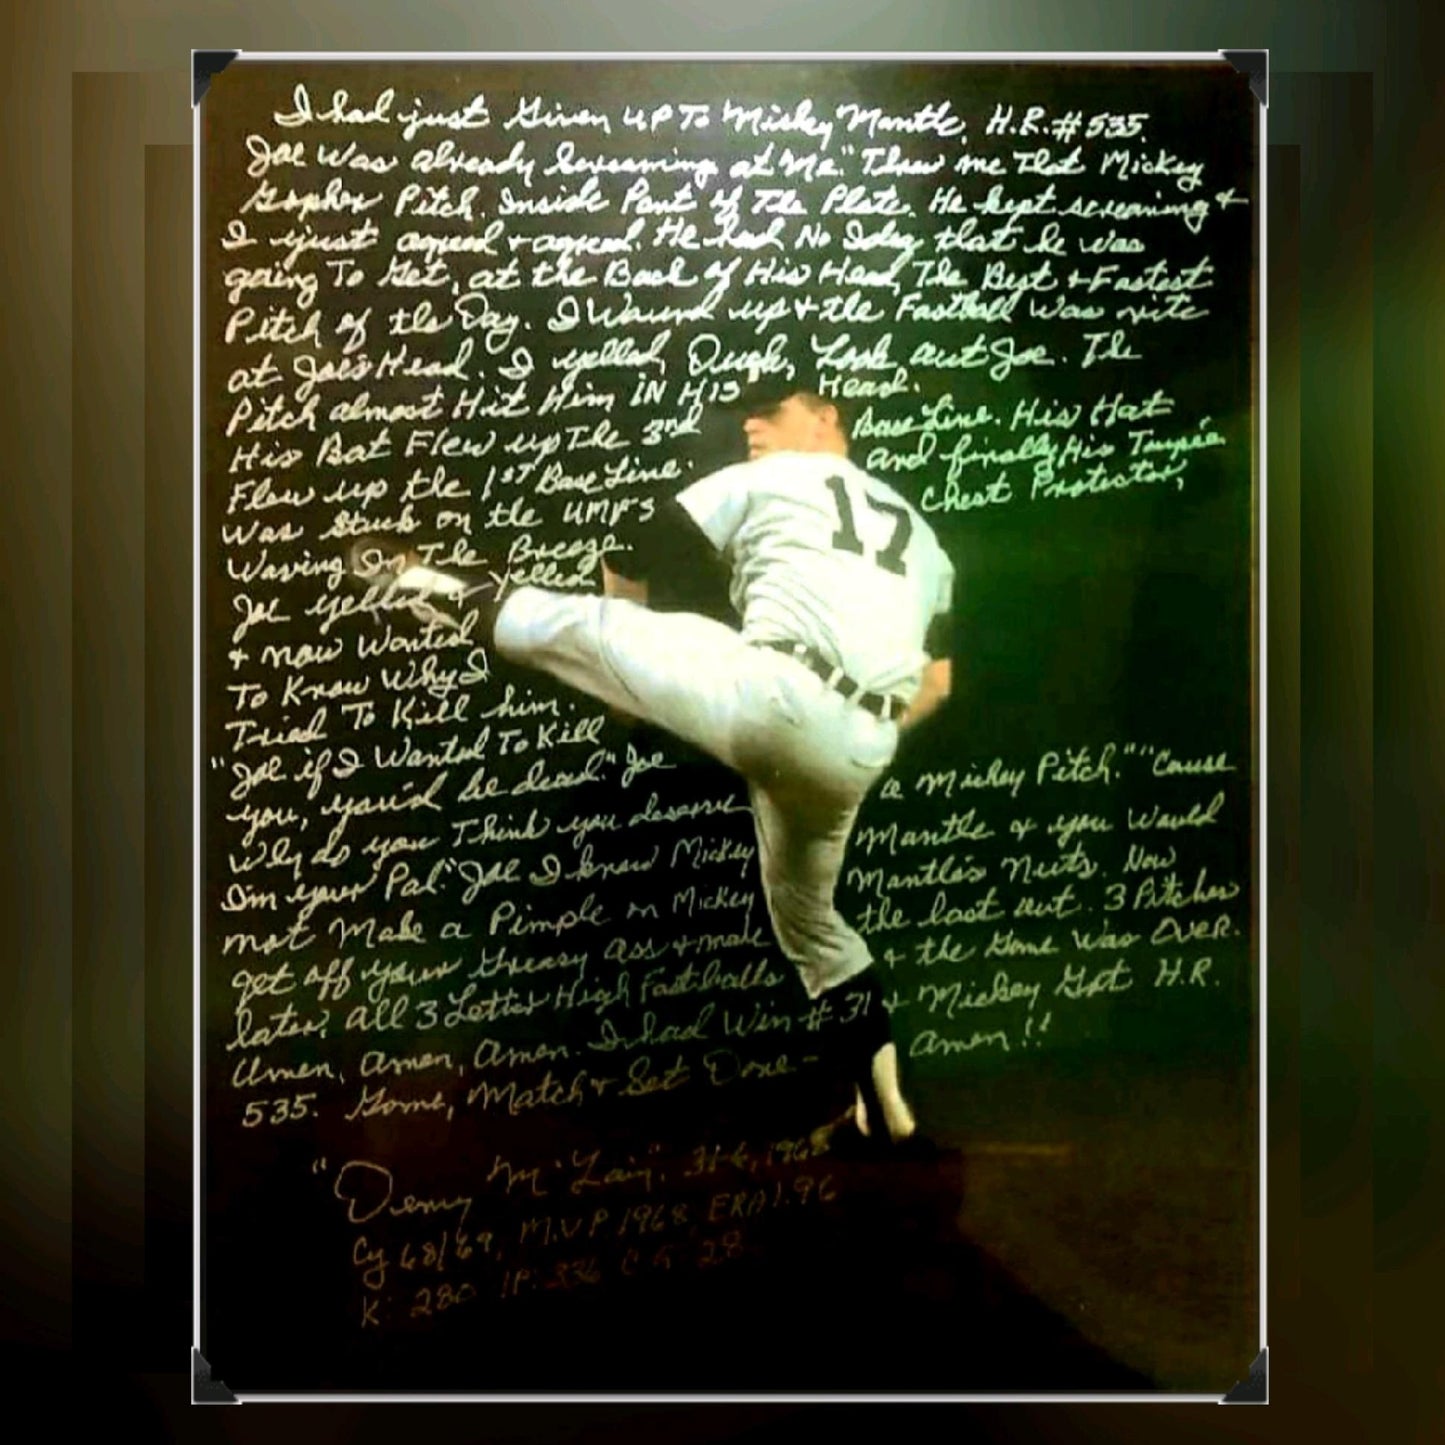 I had just Given up To Mickey Mantle, H.R. #535.
Joe Was already Screaming at Me. "Throw me That Mickey
Gopher Pitch. Inside Part of The Plate. He kept screaming +
I just agreed + agreed. He had No Idea that he was
going To Get, at the Back of His Head, The Best + Fastest
Pitch of the Day. I Wound up + the Fastball Was rite
at Joe's Head. I yelled, Ough, Look out Joe. The
Pitch almost Hit Him IN HIS Head.
His Bat Flew up The 3rd Base Line. His Hat
Flew up the 1ST Base Line. and finally His Toupée
Was Stuck on the UMP'S Chest Protector,
Waving In The Breeze.
Joe yelled + yelled
+ now Wanted
To Know Why I
Tried To Kill him.
"Joe if I Wanted To Kill
you, you'd be dead." Joe
Why do you Think you deserve a Mickey Pitch." "Cause
I'm your Pal." Joe I know Mickey Mantle & you Would
not Make a Pimple on Mickey Mantle's Nuts. Now
get off your Greasy ass + make the last out. 3 Pitches
later, all 3 Letter High Fastballs + the Game Was OVER.
Amen, Amen, Amen. I had Win #31 + Mickey Got H.R.
535. Game, Match + Set Done - Amen!!
"Denny McLain". 31-6, 1968
Cy 68/69, M.V.P. 1968, ERA 1.96
K: 280 IP: 336 C.G. 28
17